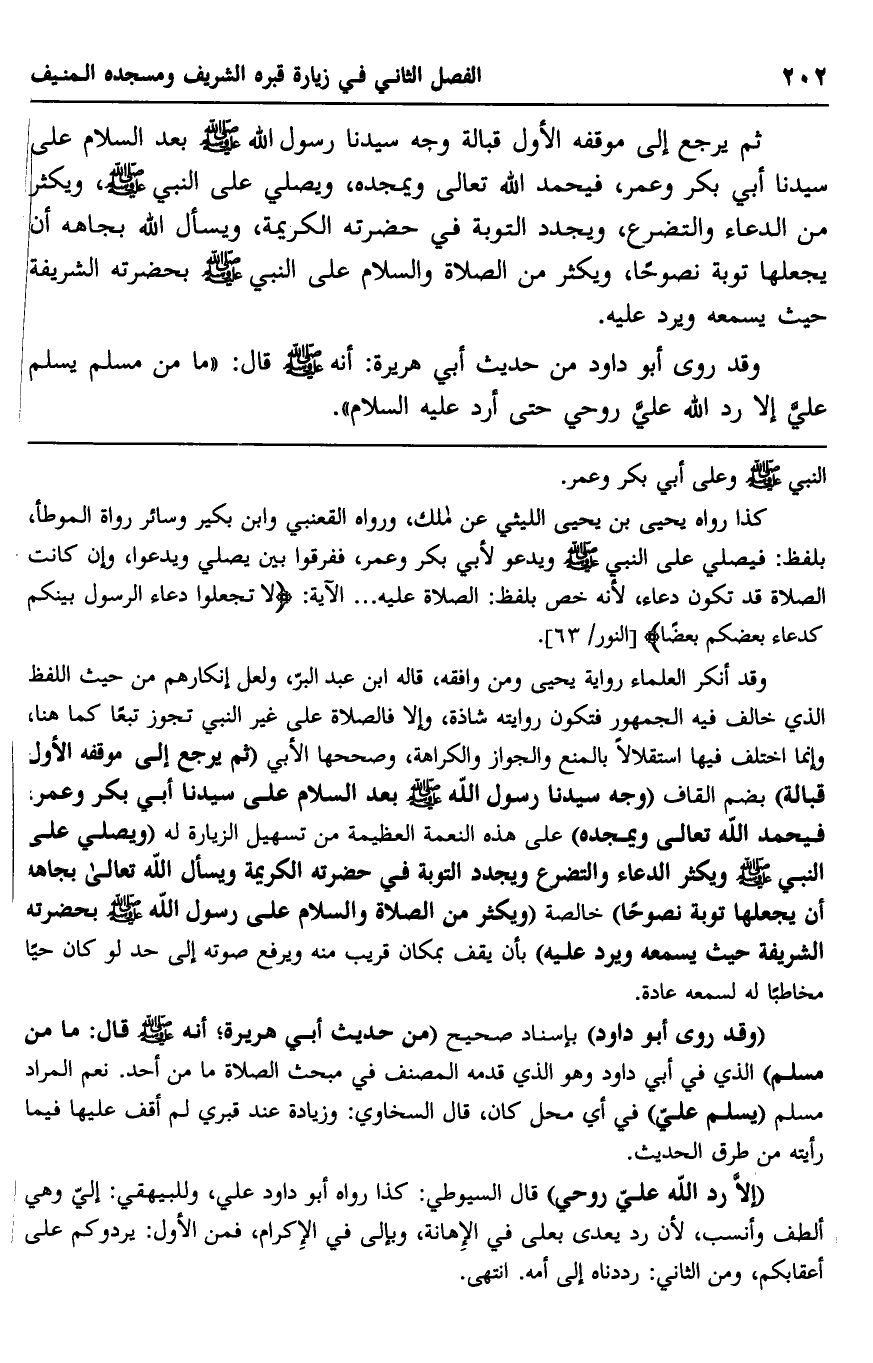 ٢٠٢ الفصل الثاني في زيارة قبره الشريف ومسجده المنيف
ثم يرجع إلى موقفه الأول قبالة وجه سيدنا رسول الله ﷺ بعد السلام على
سيدنا أبي بكر وعمر، فيحمد الله تعالى ويمجده، ويصلي على النبي ﷺ، ويكثر
من الدعاء والتضرع، ويجدد التوبة في حضرته الكريمة، ويسأل الله بجاهه أن
يجعلها توبة نصوحًا، ويكثر من الصلاة والسلام على النبي ﷺ بحضرته الشريفة
حيث يسمعه ويرد عليه.
وقد روى أبو داود من حديث أبي هريرة: أنه ﷺ قال: «ما من مسلم يسلم
عليَّ إلا رد الله عليَّ روحي حتى أرد عليه السلام».
النبي ﷺ وعلى أبي بكر وعمر.
كذا رواه يحيى بن يحيى الليثي عن لملك، ورواه القعنبي وابن بكير وسائر رواة الموطأ،
بلفظ: فيصلي على النبي ﷺ ويدعو لأبي بكر وعمر، ففرقوا بين يصلي ويدعوا، وإن كانت
الصلاة قد تكون دعاء، لأنه خص بلفظ: الصلاة عليه... الآية: ﴿لا تجعلوا دعاء الرسول بينكم
كدعاء بعضكم بعضًا﴾ [النور/ ٦٣].
وقد أنكر العلماء رواية يحيى ومن وافقه، قاله ابن عبد البرّ، ولعل إنكارهم من حيث اللفظ
الذي خالف فيه الجمهور فتكون روايته شاذة، وإلا فالصلاة على غير النبي تجوز تبعًا كما هنا،
وإنما اختلف فيها استقلالاً بالمنع والجواز والكراهة، وصححها الأبي (ثم يرجع إلى موقفه الأول
قبالة) بضم القاف (وجه سيدنا رسول اللّه ﷺ بعد السلام على سيدنا أبي بكر وعمر،
فيحمد اللّه تعالى ويمجده) على هذه النعمة العظيمة من تسهيل الزيارة له (ويصلي على
النبي ﷺ ويكثر الدعاء والتضرع ويجدد التوبة في حضرته الكريمة ويسأل اللّه تعالىٰ بجاهه
أن يجعلها توبة نصوحًا) خالصة (ويكثر من الصلاة والسلام على رسول اللّه ﷺ بحضرته
الشريفة حيث يسمعه ويرد عليه) بأن يقف بمكان قريب منه ويرفع صوته إلى حد لو كان حيًا
مخاطبًا له لسمعه عادة.
(وقد روى أبو داود) بإسناد صحيح (من حديث أبي هريرة؛ أنه ﷺ قال: ما من
مسلم) الذي في أبي داود وهو الذي قدمه المصنف في مبحث الصلاة ما من أحد. نعم المراد
مسلم (يسلم عليّ) في أي محل كان، قال السخاوي: وزيادة عند قبري لم أقف عليها فيما
رأيته من طرق الحديث.
(إلاَّ رد اللّه عليّ روحي) قال السيوطي: كذا رواه أبو داود علي، وللبيهقي: إليّ وهي
ألطف وأنسب، لأن رد يعدى بعلى في الإِهانة، وبإلى في الإِكرام، فمن الأول: يردوكم على
أعقابكم، ومن الثاني: رددناه إلى أمه. انتهى.